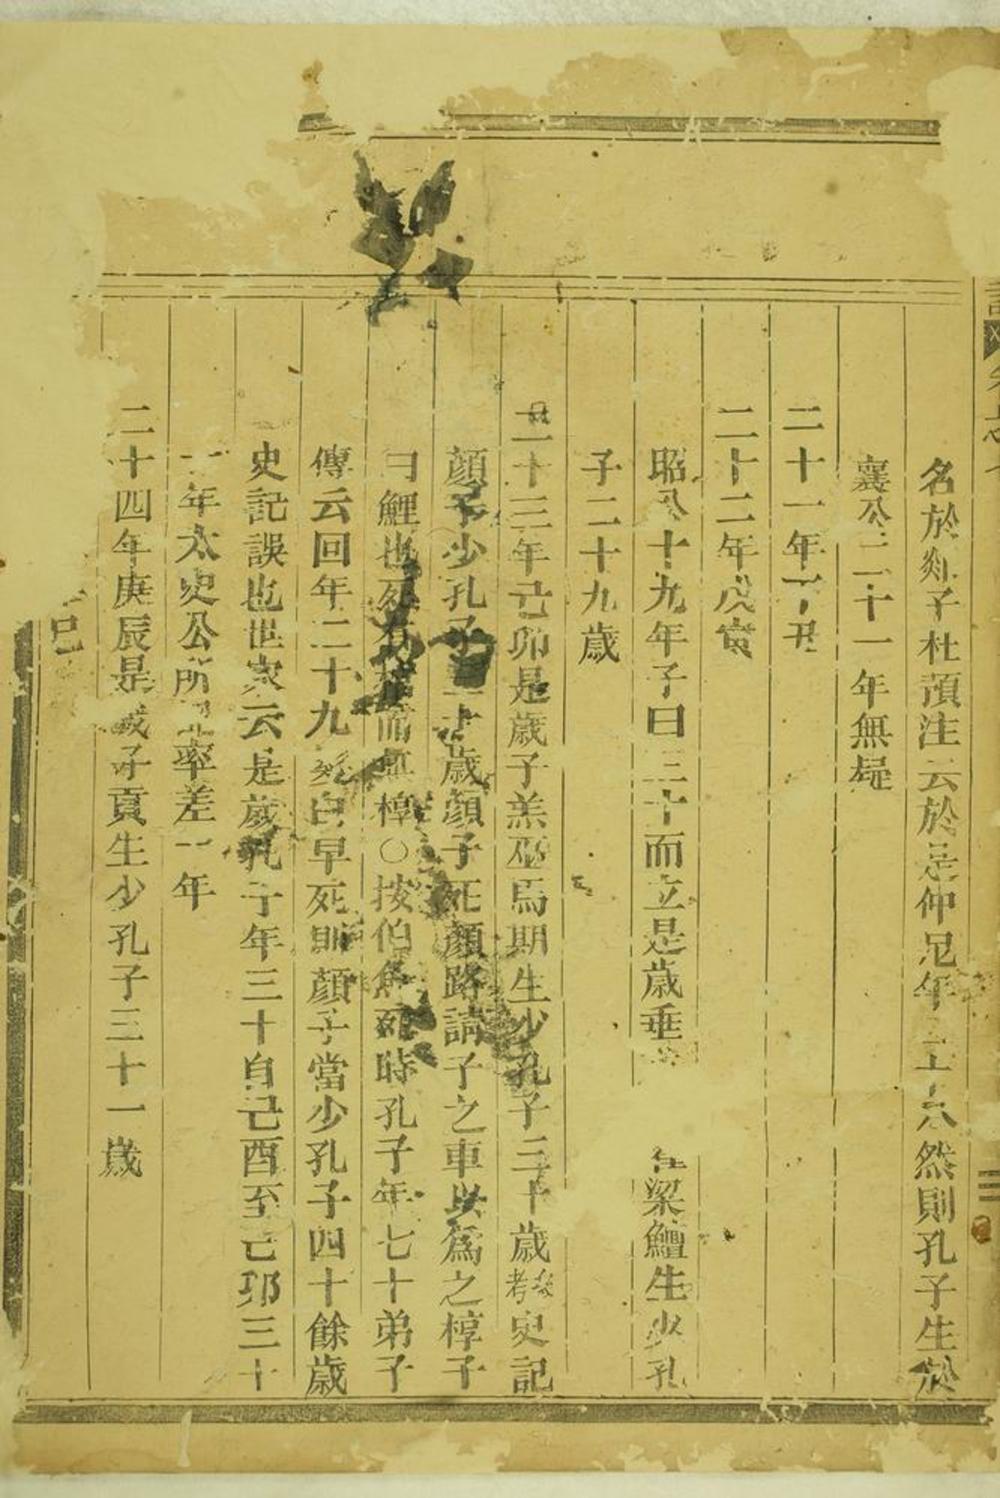 名於剡子杜預注云於是仲尼年二十八然則孔子生於
襄公二十一年無疑
二十一年丁丑
二十二年戊寅
昭公十九年子曰三十而立是歲 生梁鱣生少孔
子二十九歲
二十三年己卯是歲子羔巫馬期生少孔子三十歲考 史記
顏子少孔子三十歲顏子死顏路請子之車以爲之椁子
曰鯉也死有棺而無椁○按伯魚死時孔子年七十弟子
傳云回年二十九髮白早死則顏子當少孔子四十餘歲
史記誤也世家云是歲孔子年三十自己酉至己卯三十
一年太史公所 率差一年
二十四年庚辰是歲子貢生少孔子三十一歲